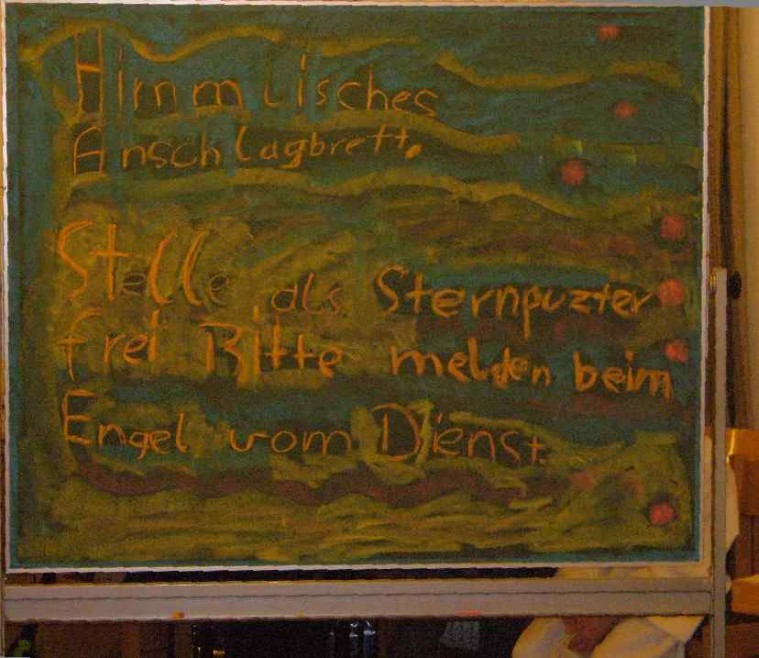 Himmlisches
Anschlagbrett.
Stelle als Sternpuzter
frei Bitte melden beim
Engel vom Dienst.